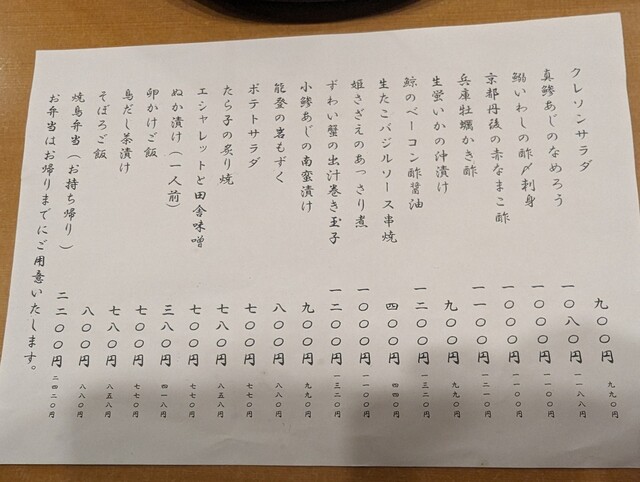 クレソンサラダ 九〇〇円 九九〇円
真鯵あじのなめろう 一〇八〇円 一一八八円
鰯いわしの酢〆刺身 一〇〇〇円 一一〇〇円
京都丹後の赤なまこ酢 一〇〇〇円 一一〇〇円
兵庫牡蠣かき酢 一一〇〇円 一二一〇円
生螢いかの沖漬け 九〇〇円 九九〇円
鯨のベーコン酢醤油 一二〇〇円 一三二〇円
生たこバジルソース串焼 四〇〇円 四四〇円
姫さざえのあっさり煮 一〇〇〇円 一一〇〇円
ずわい蟹の出汁巻き玉子 一二〇〇円 一三二〇円
小鯵あじの南蛮漬け 九〇〇円 九九〇円
能登の岩もずく 八〇〇円 八八〇円
ポテトサラダ 七〇〇円 七七〇円
たら子の炙り焼 七八〇円 八五八円
エシャレットと田舎味噌 七〇〇円 七七〇円
ぬか漬け（一人前） 三八〇円 四一八円
卵かけご飯 七〇〇円 七七〇円
鳥だし茶漬け 七八〇円 八五八円
そぼろご飯 八〇〇円 八八〇円
焼鳥弁当（お持ち帰り） 二二〇〇円 二四二〇円
お弁当はお帰りまでにご用意いたします。